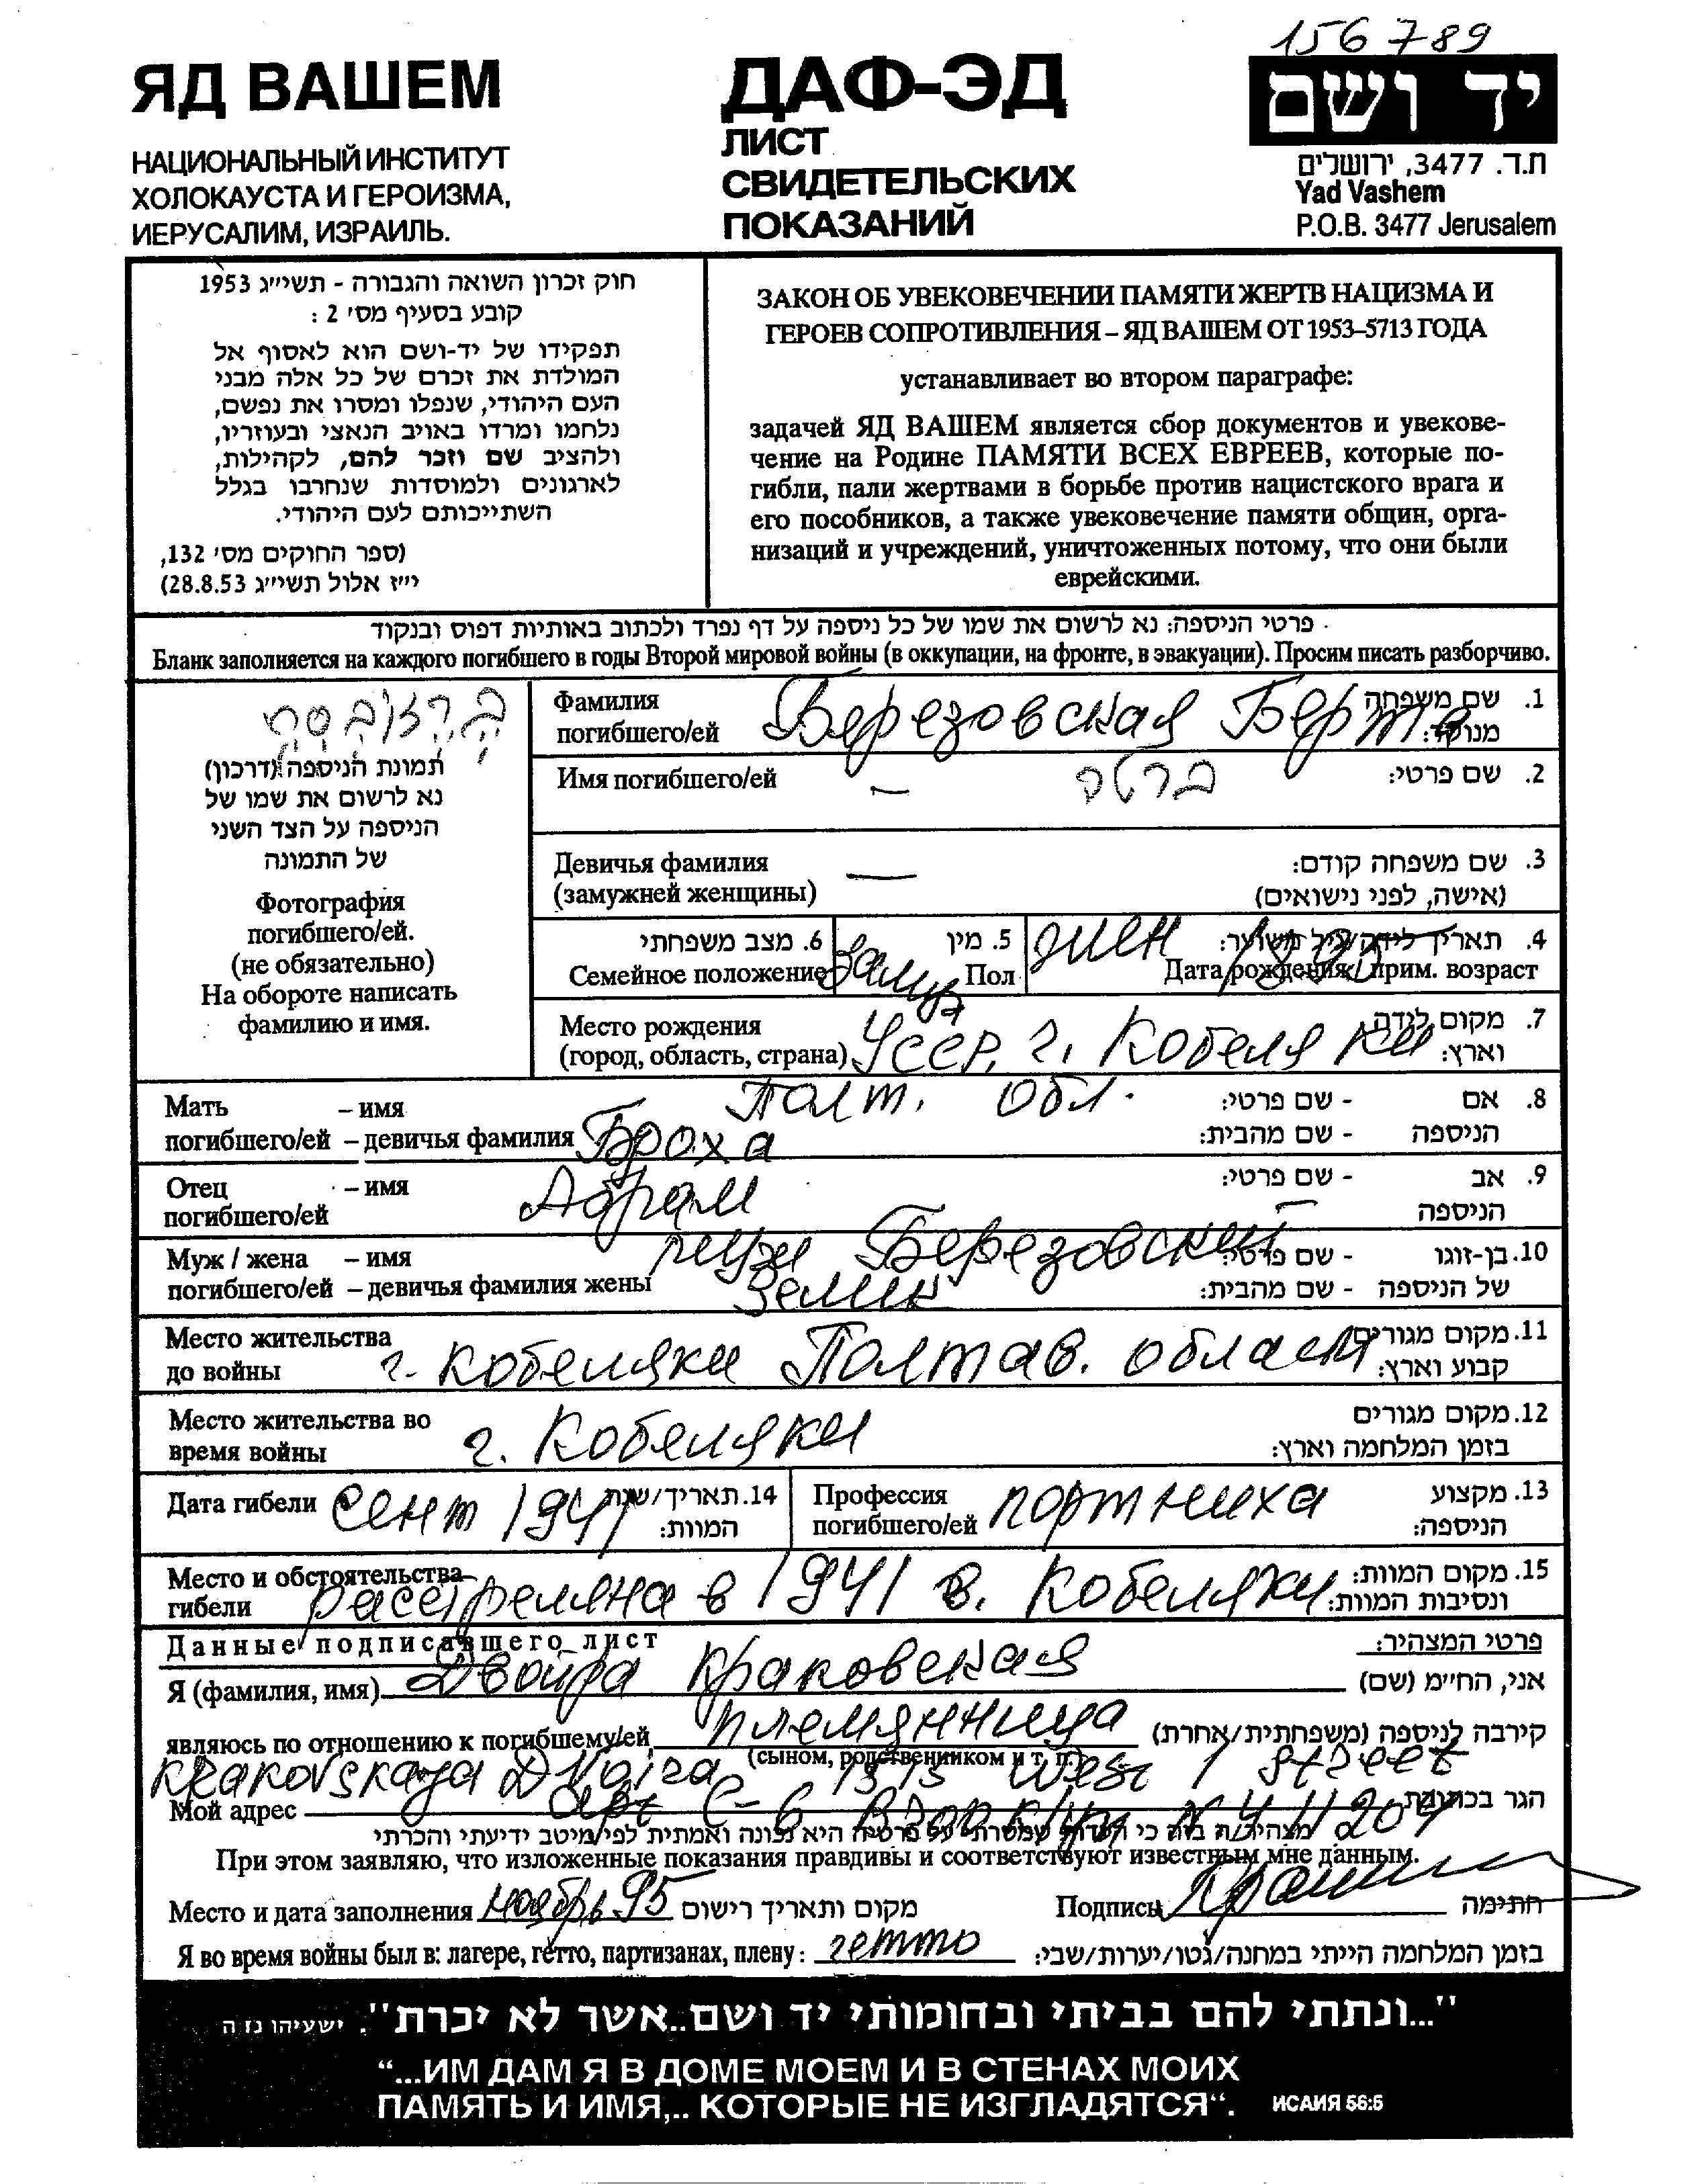 156789
ЯД ВАШЕМ
НАЦИОНАЛЬНЫЙ ИНСТИТУТ
ХОЛОКАУСТА И ГЕРОИЗМА,
ИЕРУСАЛИМ, ИЗРАИЛЬ.
ДАФ-ЭД
ЛИСТ
СВИДЕТЕЛЬСКИХ
ПОКАЗАНИЙ
יד ושם
ת.ד. 3477, ירושלים
Yad Vashem
P.O.B. 3477 Jerusalem
חוק זכרון השואה והגבורה - תשי״ג 1953
קובע בסעיף מס׳ 2 :
תפקידו של יד-ושם הוא לאסוף אל
המולדת את זכרם של כל אלה מבני
העם היהודי, שנפלו ומסרו את נפשם,
נלחמו ומרדו באויב הנאצי ובעוזריו,
ולהציב שם וזכר להם, לקהילות,
לארגונים ולמוסדות שנחרבו בגלל
השתייכותם לעם היהודי.
(ספר החוקים מס׳ 132,
י״ז אלול תשי״ג 28.8.53)
ЗАКОН ОБ УВЕКОВЕЧЕНИИ ПАМЯТИ ЖЕРТВ НАЦИЗМА И
ГЕРОЕВ СОПРОТИВЛЕНИЯ – ЯД ВАШЕМ ОТ 1953–5713 ГОДА
устанавливает во втором параграфе:
задачей ЯД ВАШЕМ является сбор документов и увекове-
чение на Родине ПАМЯТИ ВСЕХ ЕВРЕЕВ, которые по-
гибли, пали жертвами в борьбе против нацистского врага и
его пособников, а также увековечение памяти общин, орга-
низаций и учреждений, уничтоженных потому, что они были
еврейскими.
פרטי הניספה: נא לרשום את שמו של כל ניספה על דף נפרד ולכתוב באותיות דפוס ובנקוד
Бланк заполняется на каждого погибшего в годы Второй мировой войны (в оккупации, на фронте, в эвакуации). Просим писать разборчиво.
תמונת הניספה (דרכון)
נא לרשום את שמו של
הניספה על הצד השני
של התמונה
Фотография
погибшего/ей.
(не обязательно)
На обороте написать
фамилию и имя.
Фамилия
погибшего/ей Березовская Берта 1. שם משפחה
Имя погибшего/ей – ברטה 2. שם פרטי:
Девичья фамилия — 3. שם משפחה קודם:
(замужней женщины) (אישה, לפני נישואים)
6. מצב משפחתי 5. מין жен 4. תאריך
Семейное положение замуж Пол Дата рождения/прим. возраст
Место рождения 7. מקום לידה
(город, область, страна) УССР, г. Кобеляки וארץ:
Полт. обл.
Мать – имя 8. אם - שם פרטי:
погибшего/ей – девичья фамилия Броха הניספה - שם מהבית:
Отец – имя Абрам 9. אב - שם פרטי:
погибшего/ей הניספה
Муж / жена – имя муж Березовский 10. בן-זוגו - שם פרטי:
погибшего/ей – девичья фамилия жены Зелик של הניספה - שם מהבית:
Место жительства 11. מקום מגורים
до войны г. Кобеляки Полтав. области קבוע וארץ:
Место жительства во 12. מקום מגורים
время войны г. Кобеляки בזמן המלחמה וארץ:
Дата гибели сент 1941 14. תאריך/שנת המוות:
Профессия
погибшего/ей портниха 13. מקצוע הניספה:
Место и обстоятельства 15. מקום המוות:
гибели расстреляна в 1941 в. Кобеляки ונסיבות המוות:
Данные подписавшего лист פרטי המצהיר:
Я (фамилия, имя) Двойра Краковская אני, הח״מ (שם)
являюсь по отношению к погибшему/ей племянница קירבה לניספה (משפחתית/אחרת)
(сыном, родственником и т. п.)
Krakovskaya Dvoira 1515 West 1 street
Мой адрес apt C-6 Brooklyn N.Y 11204 הגר בכתובת
מצהיר/ה בזה כי העדות שמסרתי על פרטיה היא נכונה ואמתית לפי מיטב ידיעתי והכרתי
При этом заявляю, что изложенные показания правдивы и соответствуют известным мне данным.
Место и дата заполнения ноябрь 95 מקום ותאריך רישום Подпись חתימה
Я во время войны был в: лагере, гетто, партизанах, плену: гетто בזמן המלחמה הייתי במחנה/גטו/יערות/שבי:
"...ונתתי להם בביתי ובחומותי יד ושם..אשר לא יכרת". ישעיהו נו ה
“...ИМ ДАМ Я В ДОМЕ МОЕМ И В СТЕНАХ МОИХ
ПАМЯТЬ И ИМЯ,.. КОТОРЫЕ НЕ ИЗГЛАДЯТСЯ“. ИСАИЯ 56:5